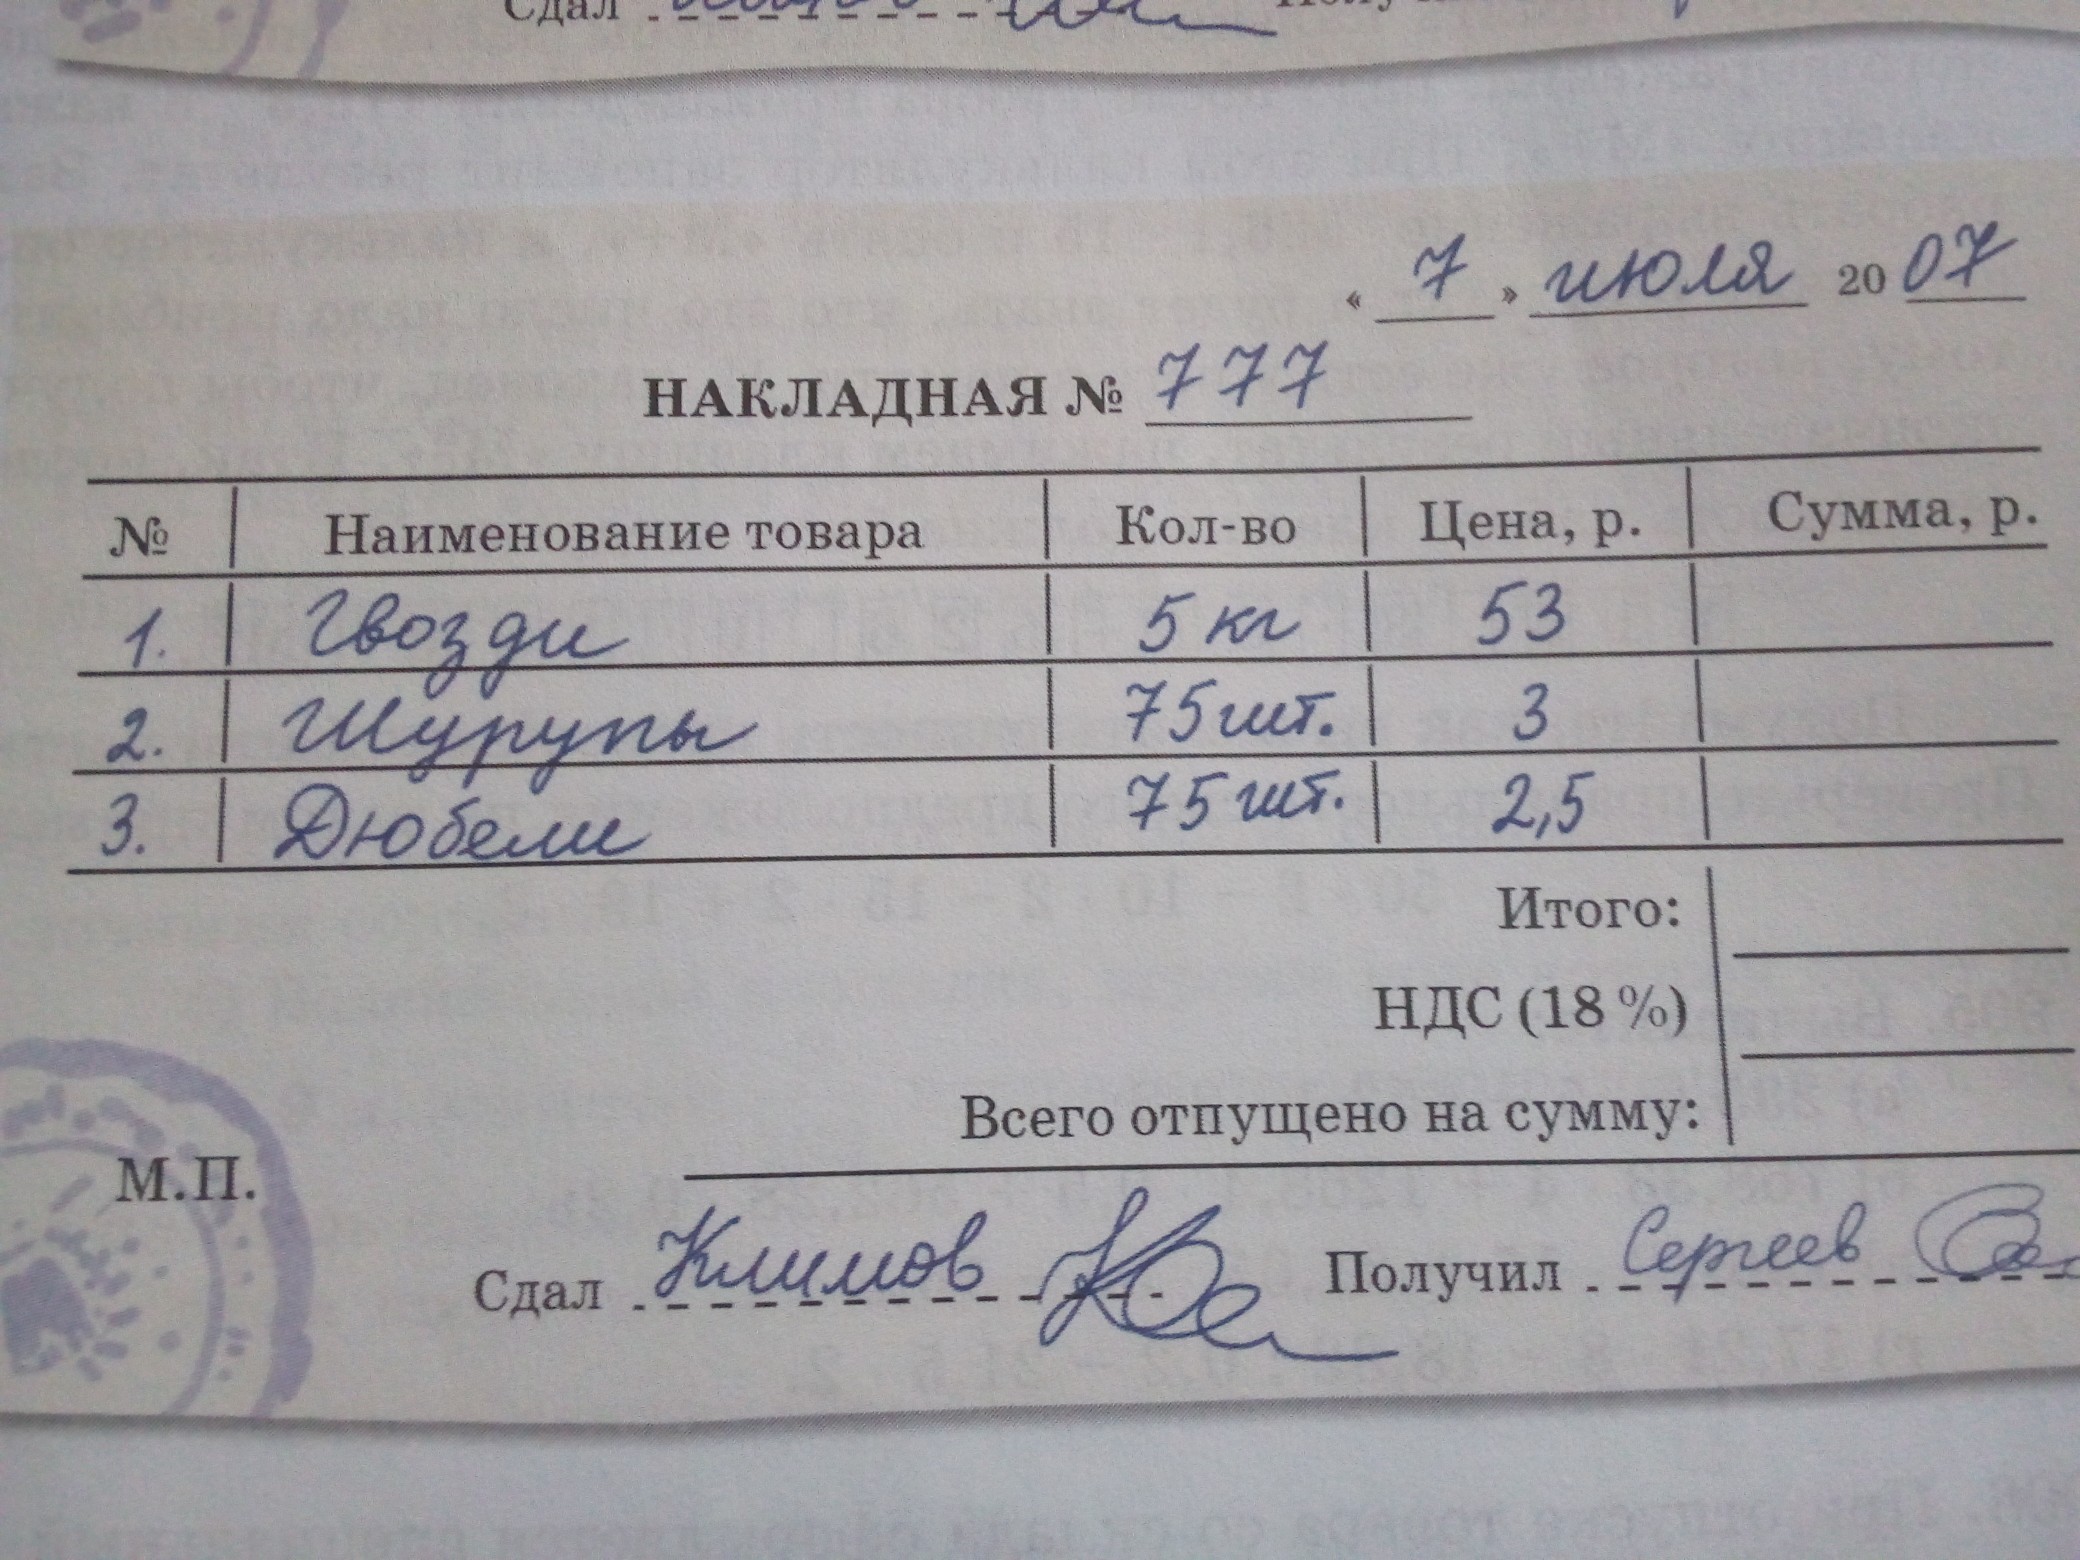 Сдал
« 7 » июля 2007
НАКЛАДНАЯ № 777
№ Наименование товара Кол-во Цена, р. Сумма, р.
1. Гвозди 5 кг 53
2. Шурупы 75 шт. 3
3. Дюбели 75 шт. 2,5
Итого:
НДС (18 %)
Всего отпущено на сумму:
М.П.
Сдал Климов Получил Сергеев